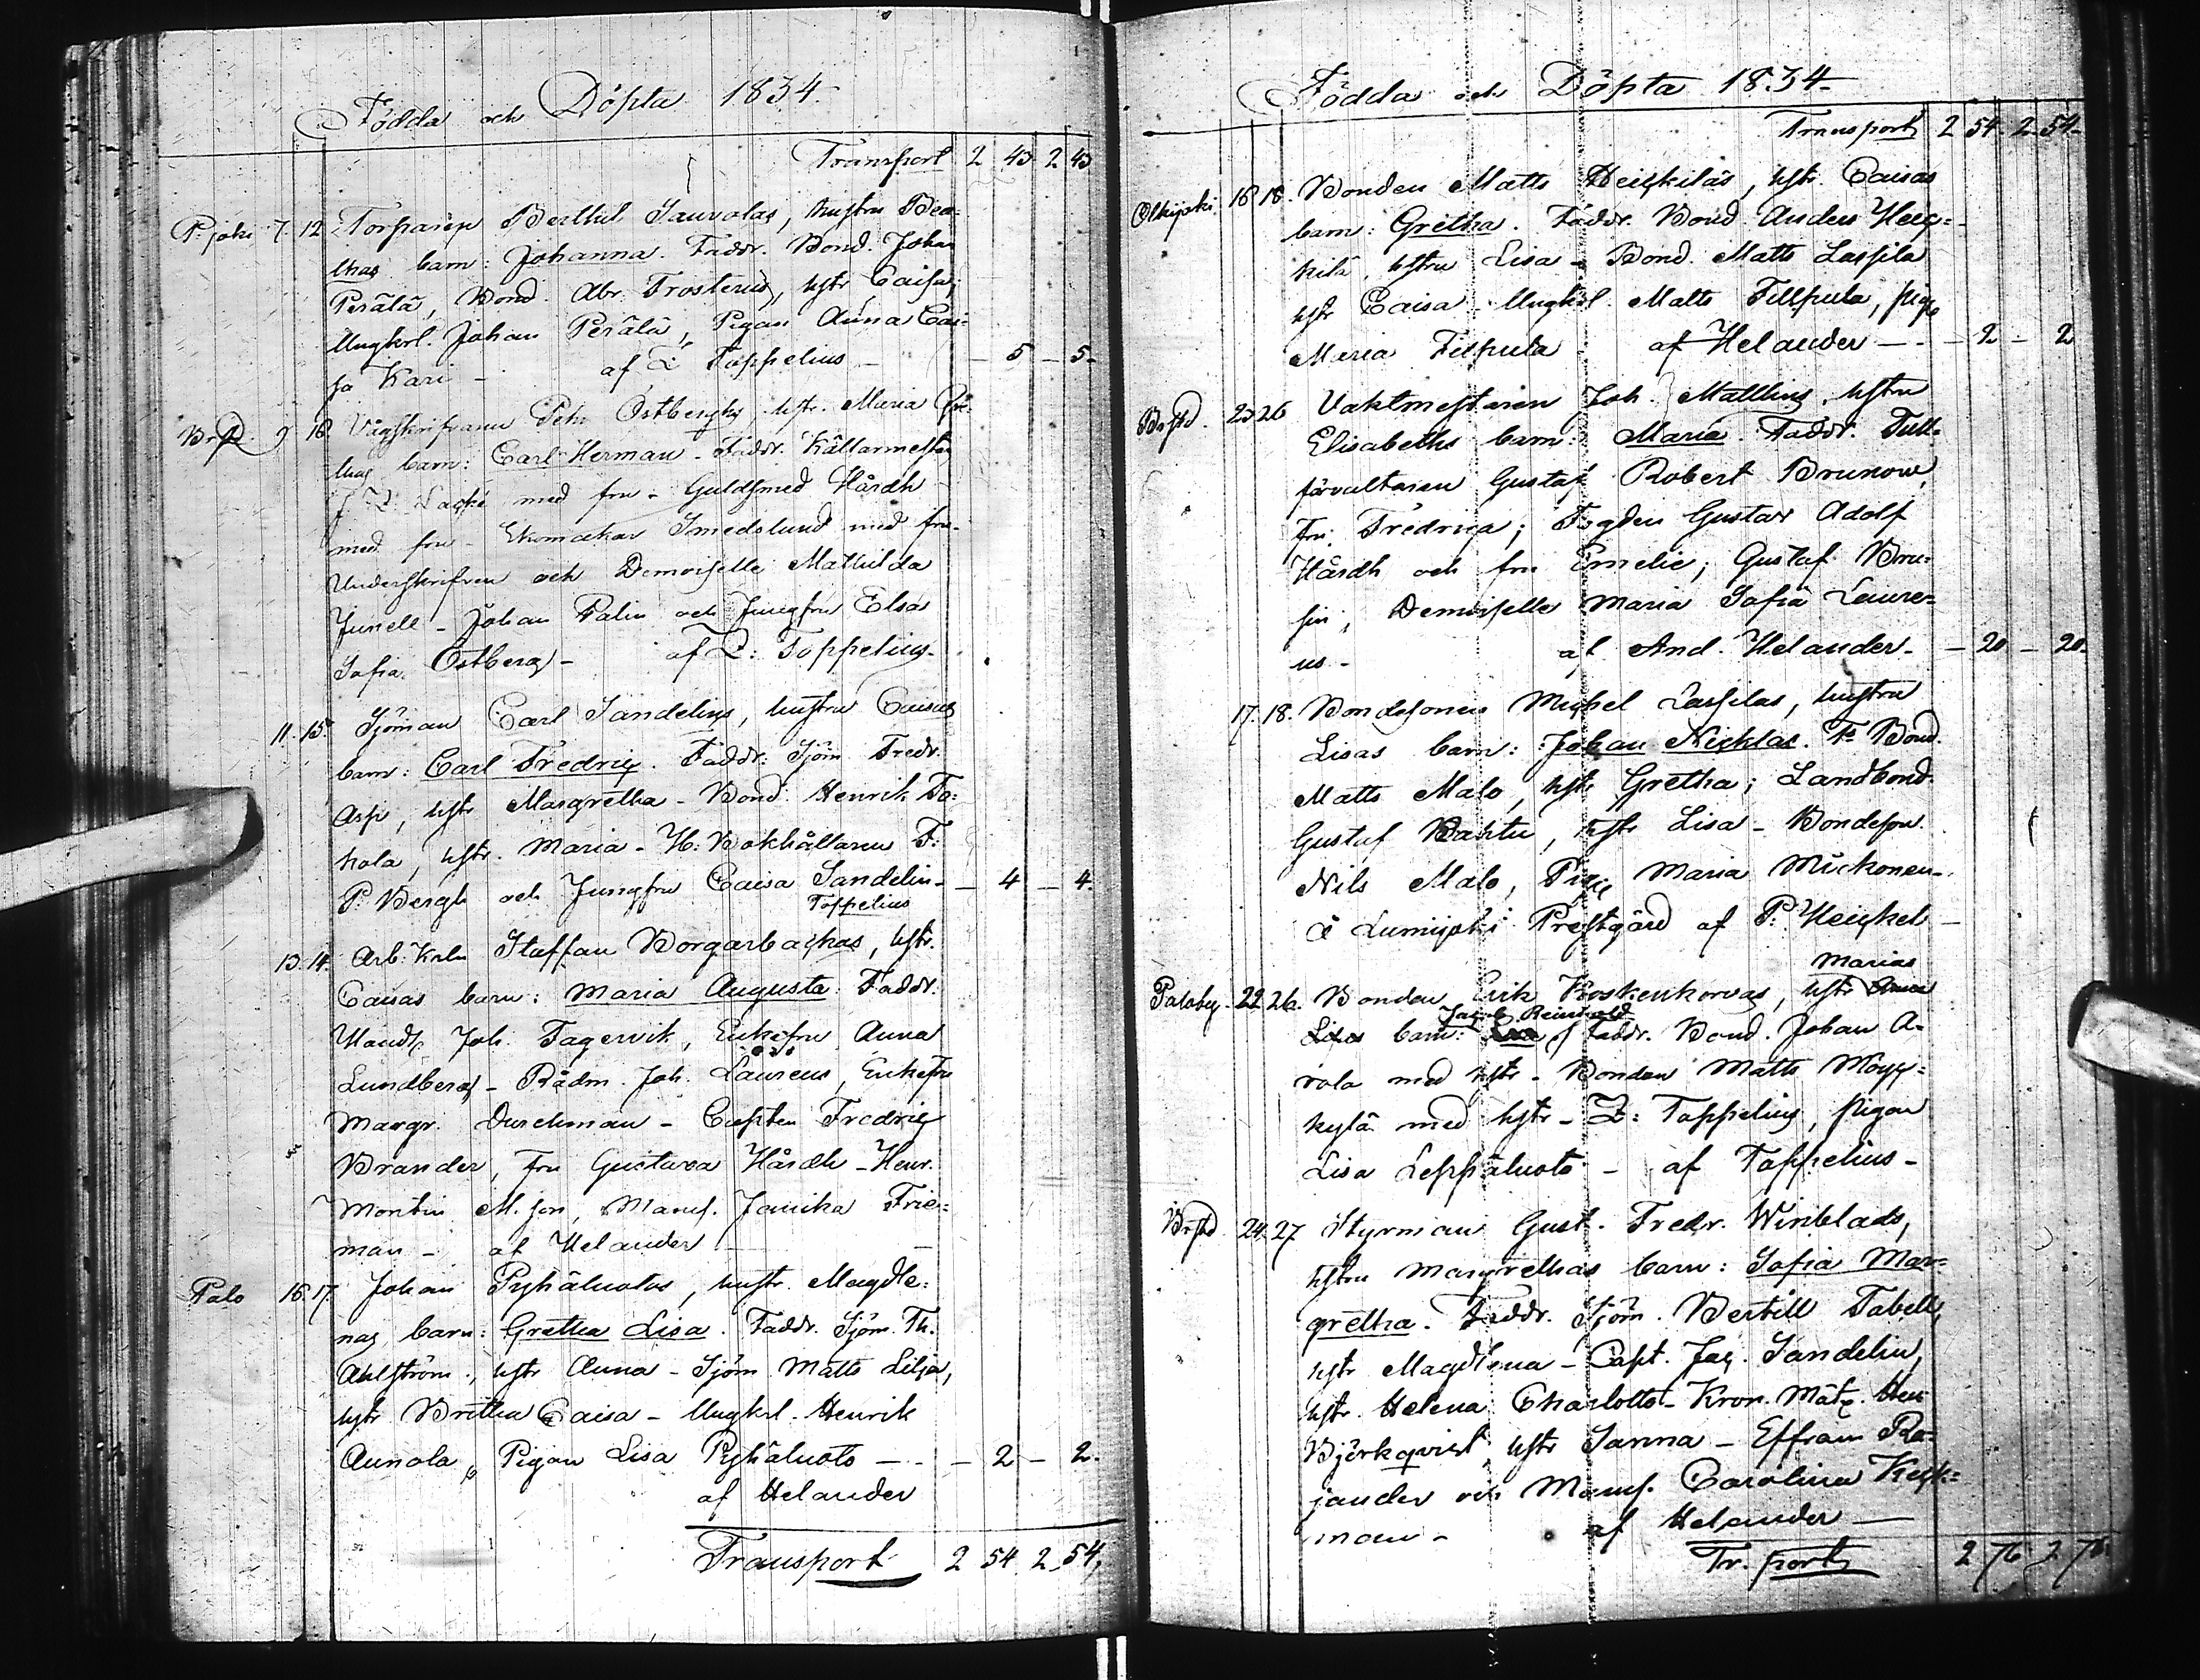 Födda och Döpta 1834.
Transport 2 43 2 43
P.joki 7. 12. Torparen Berthil Saurolas, hustru Brea-
thas barn: Johanna. Faddr. Bond. Johan
Perälä, Bond. Abr. Frosterus, hstr Caisa;
Ungkrl. Johan Perälä, Pigan Anna Cai-
sa Kari - af Z. Toppelius - - 5 - 5-
Br.st. 9 18. Vågskrifvaren Petr Östbergs hstr. Maria
barn: Carl Herman - Faddr. Källarmestar
med fru - Guldsmed Hårdh
med fru - Smedslund med fru -
Underskrifven och Demoiselle Mathilda
Junell - Johan Palin och Jungfru Elsa
Sofia Östberg - af Z: Toppelius -
11. 15. Sjöman Carl Sandelins, hustru Caisas
barn: Carl Fredric. Faddr: Sjöm Fredr.
Asp, hstr Margretha - Bond. Henrik To-
hola, hstr. Maria - H: Bokhållaren F:
P. Bergh och Jungfru Caisa Sandelin - - 4 - 4.
Toppelius
13. 14. Arb: Krln Staffan Borgarbackas, hstr.
Caisas barn: Maria Augusta. Faddr.
Handl. Joh. Fagervik, Enkefru Anna
Lundberg - Rådm. Joh. Laurens, Enkefru
Margr. Durchman - Capten Fredric
Brander, fru Gustava Hårdh - Henr.
Montin M. son, Mams. Janika Frie-
man - af Helander
Palo 16. 17. Johan Pyhäluotos, hustr. Magdle-
nas barn: Gretha Lisa. Faddr. Sjöm. Th.
Ahlström, hstr Anna - Sjöm Matts Lilja,
hstr Britha Caisa - Ungkrl. Henrik
Aunola, Pigan Lisa Pyhäluoto - - - 2 - 2.
af Helander
Transport 2 54 2 54,
Födda och Döpta 1834-
Transport 2 54 2 54-
Olkijoki 16 18. Bonden Matts Heickiläs, hstr. Caisas
barn: Gretha. Faddr. Bond Anders Heic-
kilä, hstru Lisa - Bond. Matts Lassila
hstr Caisa - Ungkrl. Matts Filpula, pig.
Maria Filpula af Helander - - 2 - 2
Br.std. 23 26 Vaktmestaren Joh. Matthins, hstru
Elisabeths barn: Maria. Faddr. Tull-
förvaltaren Gustaf Robert Brunow,
fru Fredrica; Fogden Gustav Adolf
Hårdh och fru Emelie; Gustaf Bru-
sin, Demoiselle Maria Sofia Laure-
us - af And. Helander - - 20 - 20.
17. 18. Bondesonen Michel Lassilas, hustru
Lisas barn: Johan Nicklas. Fr Bond.
Matts Malo, hstr Gretha; Landbond.
Gustaf Bahtu, hstr Lisa - Bondeson
Nils Malo, Pig. Maria Mickonen -
å Lumijoki Prestgård af P. Heickel -
Marias
Paloby. 22. 26. Bonden Erik Koskenkorvas, hstr Anna
Jacob Reinhold
Lisas barn: Faddr. Bond. Johan A-
rola med hstr - Bonden Matts
kylä med hstr - Z: Toppelius, pigan
Lisa Leppäluoto - af Toppelius -
Br.std 24. 27 Styrman Gust. Fredr. Winblads,
hstru Margrethas barn: Sofia Mar-
gretha. Faddr. Sjöm. Bertill Tabell,
hstr Magdlena - Capt. Jac. Sandelin,
hstr. Helena Charlotta - Kron. Mät. Hen
Björkqvist, hstr Sanna - Effraim Ro-
jander och Mams. Carolina Keck-
man - af Helander -
Tr. port 2 76 2 76